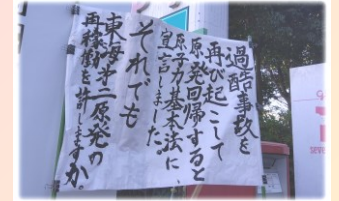 過酷事故を
再び起こして
原発回帰すると
原子力基本法に、
宣言しました。
それでも
東海第二原発の
再稼働を許しますか。